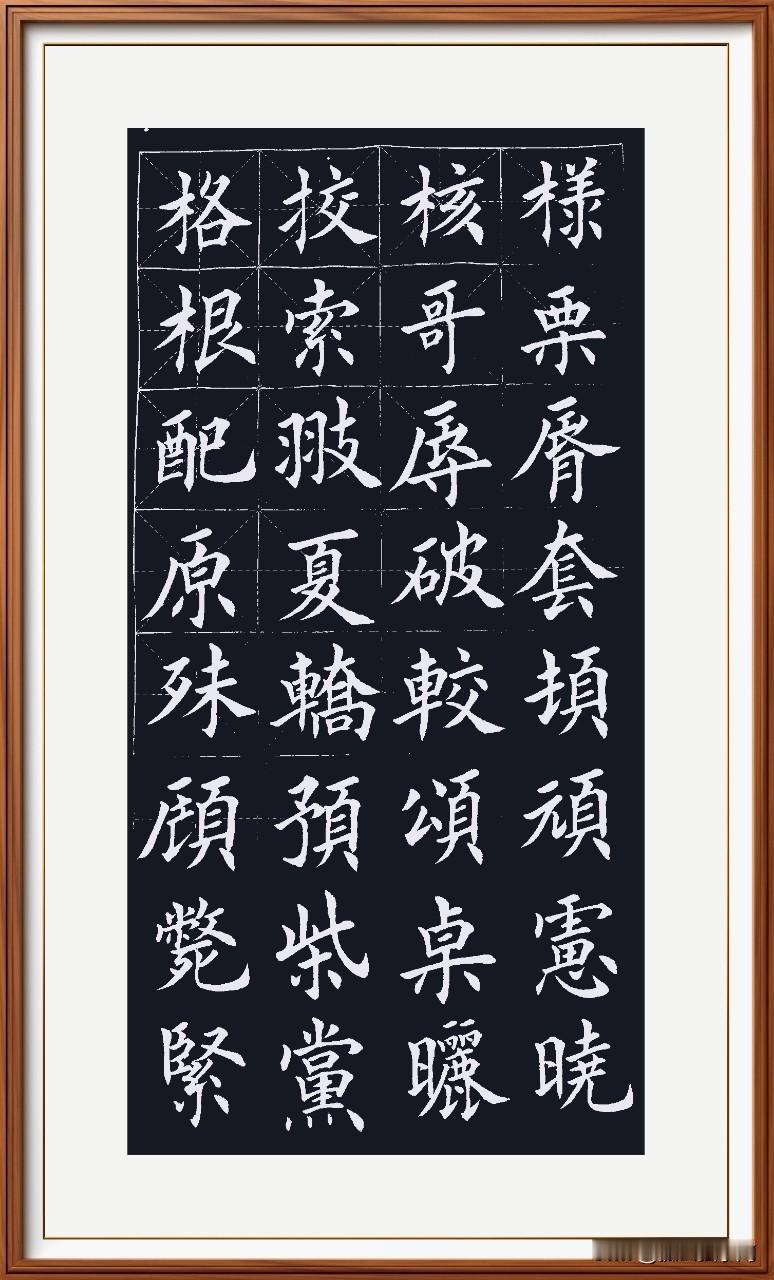 格挍核樣
根索哥栗
配翅辱脣
原夏破套
殊轎較頓
顧預頌頑
斃柴桌慮
緊黨曬曉